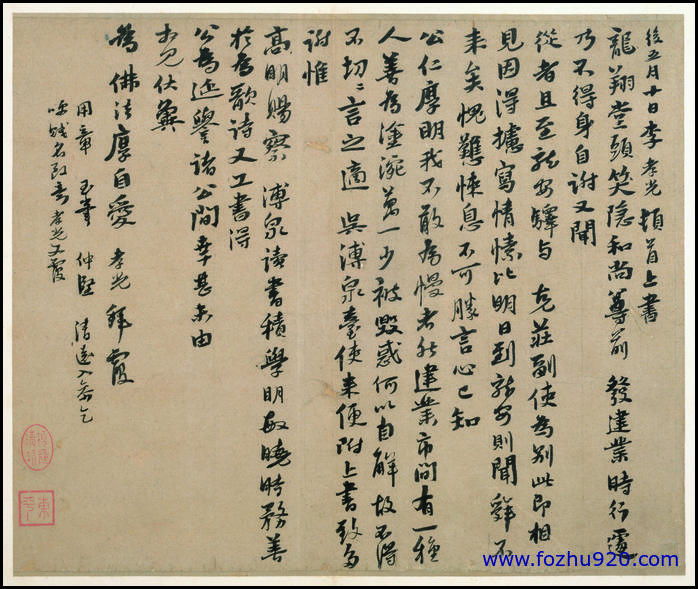 後五月十日李孝光頓首上書
龍翔堂頭笑隱和尚尊前 發建業時行遽
乃不得身自謝又聞
從者且至龍安驛與 克莊副使為別此即相
見因得攄寫情愫比明日到龍安則聞舜不
來矣愧戁悚息不可勝言心已知
公仁厚明我不敢為慢者然建業市間有一種
人善為塗涴萬一少被毀惑何以自解故不得
不切二言之適 吳溥泉臺使来便附上書致多
謝惟
高明賜察 溥泉讀書積學明敏曉時務善
於為歌詩又工書得
公為延譽諸公間幸甚未由
示見伏冀
為佛法厚自愛 孝光 拜覆
用章 玉章 仲堅 清遠入希乞
呼賤名致意孝光又覆
www.fozhu920.com